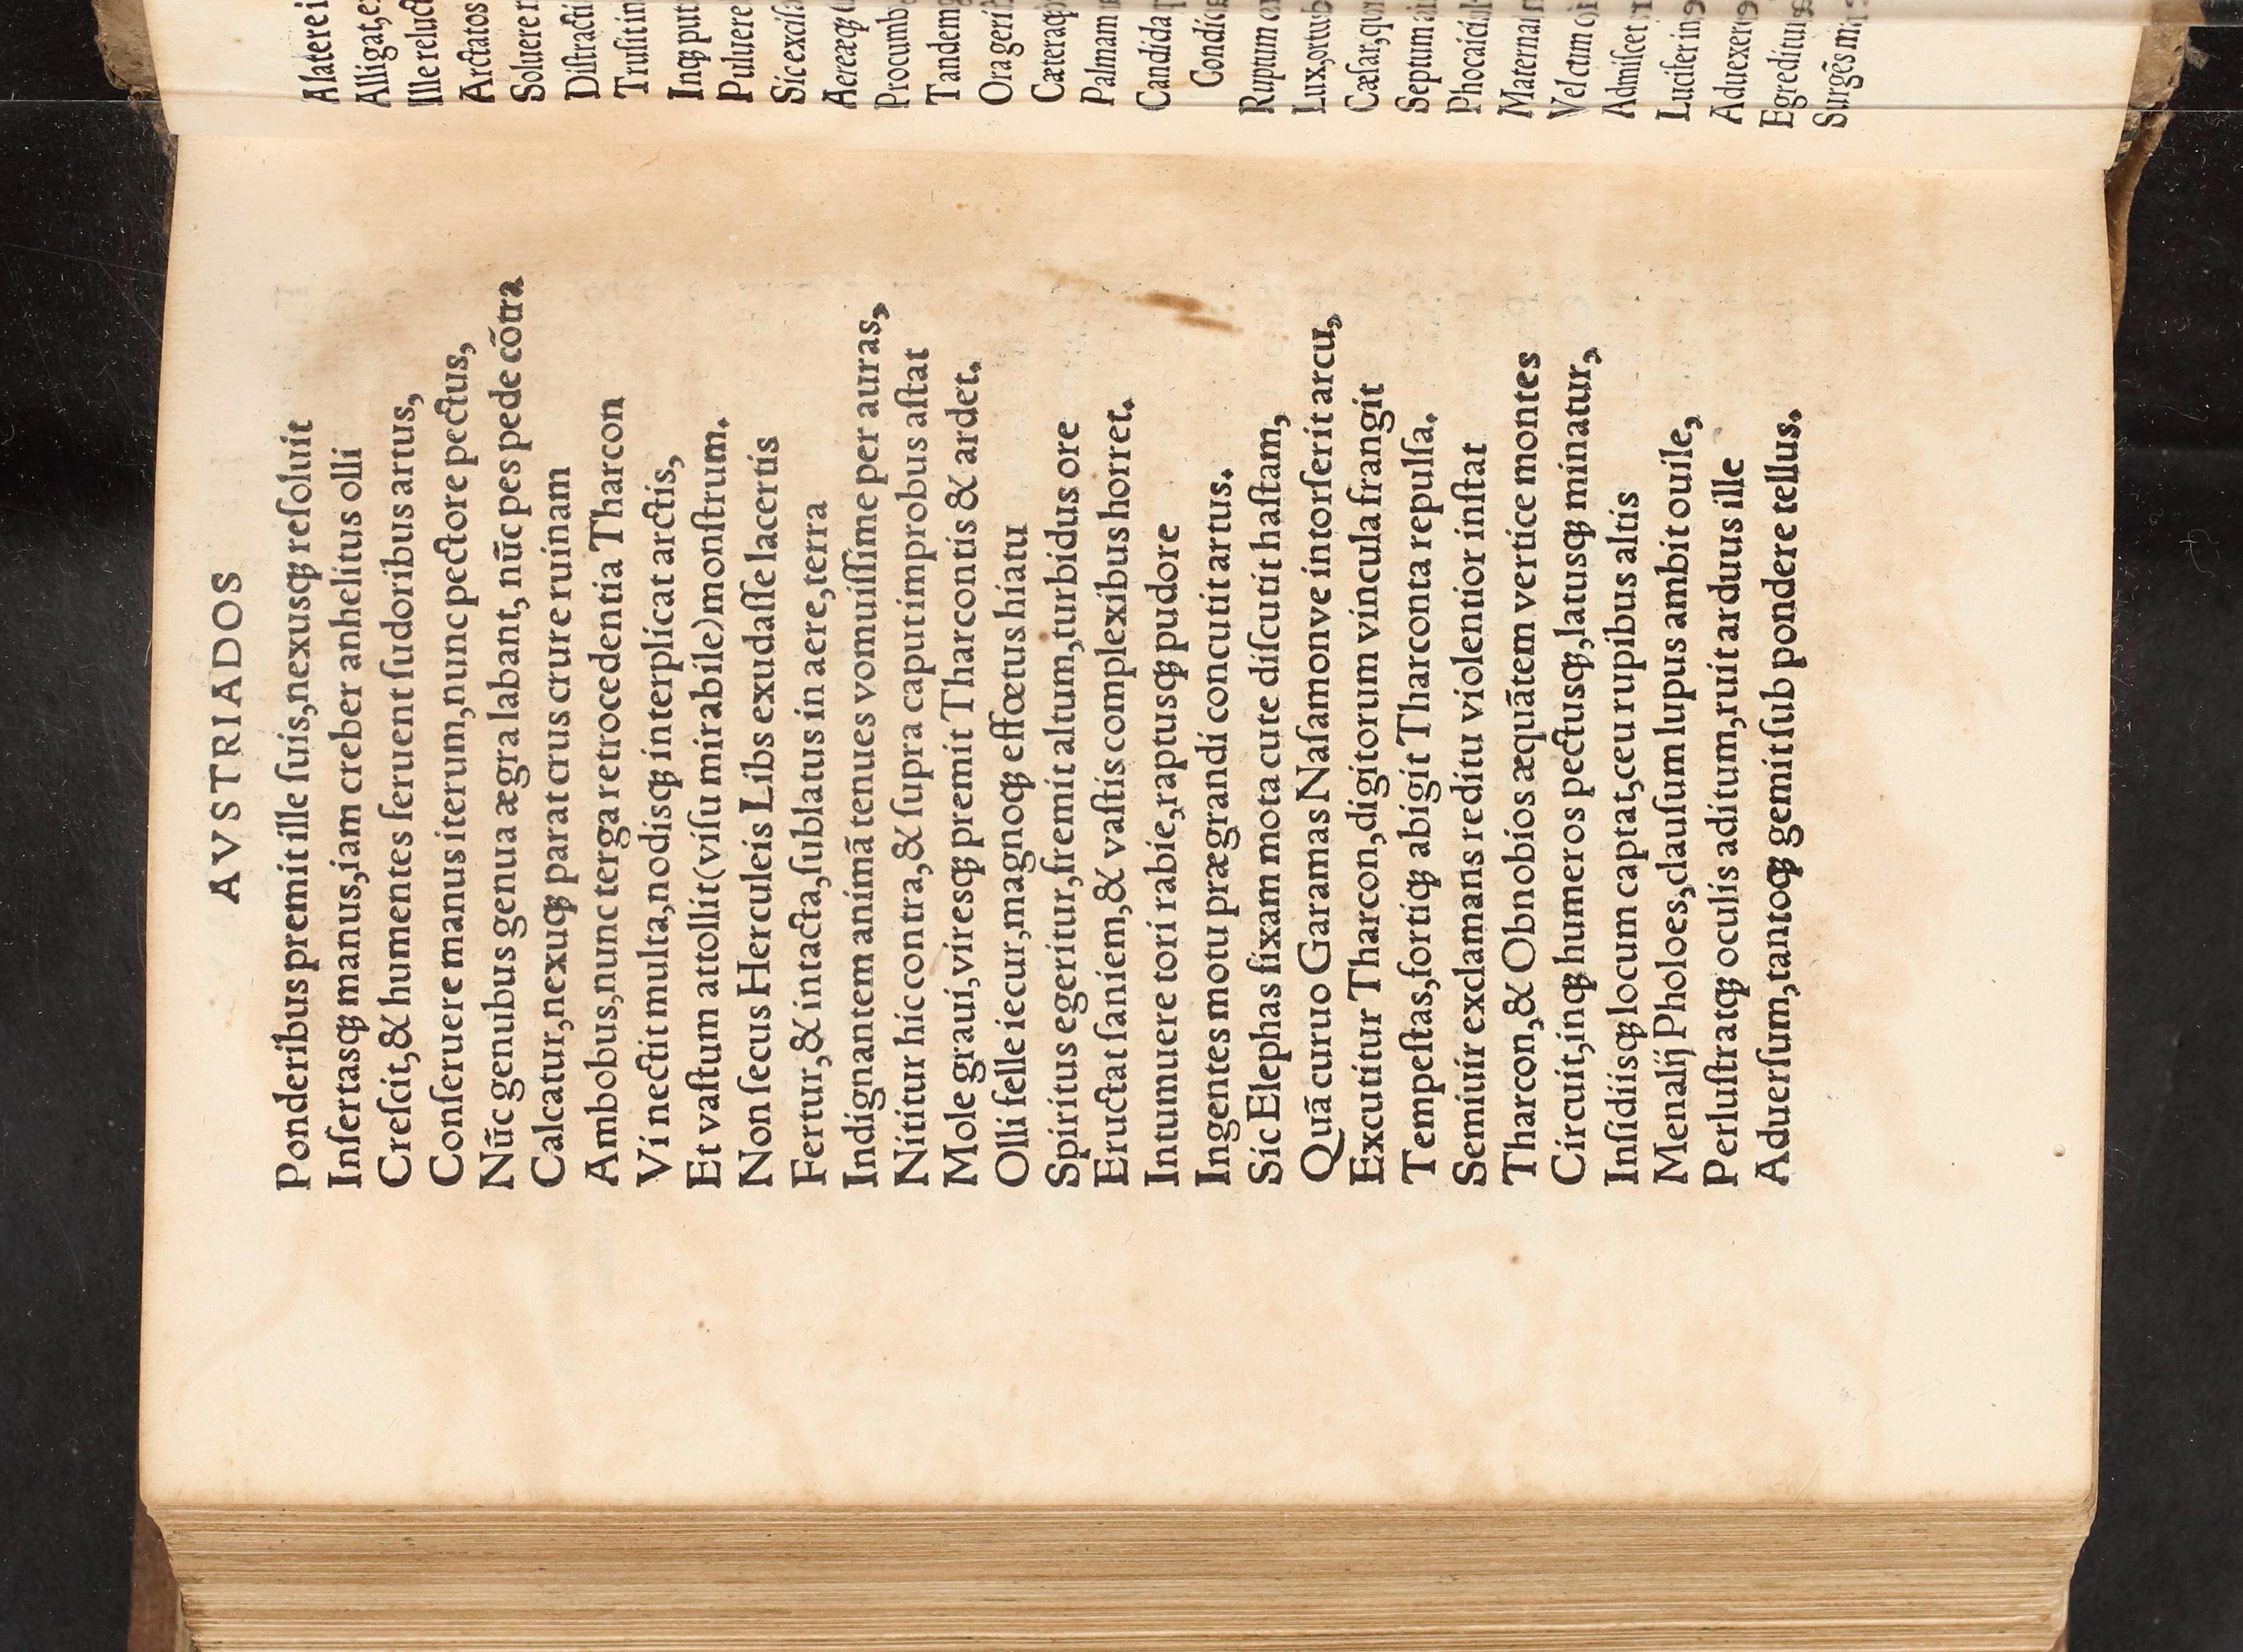 AVSTRIADOS
Ponderibus premit ille ſuis, nexusqꝫ reſoluit
Inſertasqꝫ manus, iam creber anhelitus olli
Creſcit, & humentes feruent ſudoribus artus,
Conſeruere manus iterum, nunc pectore pectus,
Nūc genubus genua ægra labant, nūc pes pede cōtra
Calcatur, nexuqꝫ parat crus crure ruinam
Ambobus, nunc terga retrocedentia Tharcon
Vi nectit multa, nodisqꝫ interplicat arctis,
Et vaſtum attollit (viſu mirabile) monſtrum.
Non ſecus Herculeis Libs exudaſſe lacertis
Fertur, & intacta, ſublatus in aere, terra
Indignantem animā tenues vomuiſſime per auras,
Nititur hic contra, & ſupra caput improbus aſtat
Mole graui, viresqꝫ premit Tharcontis & ardet.
Olli felle iecur, magnoqꝫ effœtus hiatu
Spiritus egeritur, fremit altum, turbidus ore
Eructat ſaniem, & vaſtis complexibus horret.
Intumuere tori rabie, raptusqꝫ pudore
Ingentes motu prægrandi concutit artus.
Sic Elephas fixam mota cute diſcutit haſtam,
Quā curuo Garamas Naſamonve intorſerit arcu,
Excutitur Tharcon, digitorum vincula frangit
Tempeſtas, fortiqꝫ abigit Tharconta repulſa.
Semiuir exclamans reditu violentior inſtat
Tharcon, & Obnobios æquātem vertice montes
Circuit, inqꝫ humeros pectusqꝫ, latusqꝫ minatur,
Inſidiisqꝫ locum captat, ceu rupibus altis
Menalij Pholoes, clauſum lupus ambit ouile,
Perluſtratqꝫ oculis aditum, ruit arduus ille
Aduerſum, tantoqꝫ gemit ſub pondere tellus.
Alligat, e
Ille reluct
Arctatos
Soluere
Diſtracti
Truſit in
Inqꝫ put
Puluere
Sic exciſa
Procumb
Tandem
Ora geri
Cæteraqꝫ
Palmam
Candida
Condi
Ruptum
Lux, ortu
Cæſar, qu
Septum
Phocaici
Materna
Vel cum
Admiſcet
Lucifer in
Aduexer
Egreditur
Surgēs